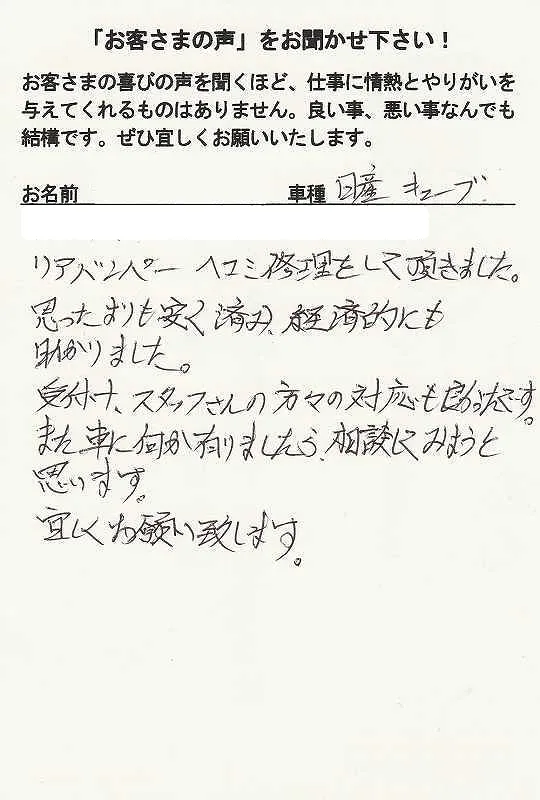 「お客さまの声」をお聞かせ下さい！
お客さまの喜びの声を聞くほど、仕事に情熱とやりがいを
与えてくれるものはありません。良い事、悪い事なんでも
結構です。ぜひ宜しくお願いいたします。
お名前 車種 日産 キューブ
リアバンパー ヘコミ修理をして頂きました。
思ったよりも安く済み、経済的にも
助かりました。
受付け、スタッフさんの方々の対応も良かったです。
また車に何か有りましたら、相談してみようと
思います。
宜しくお願い致します。